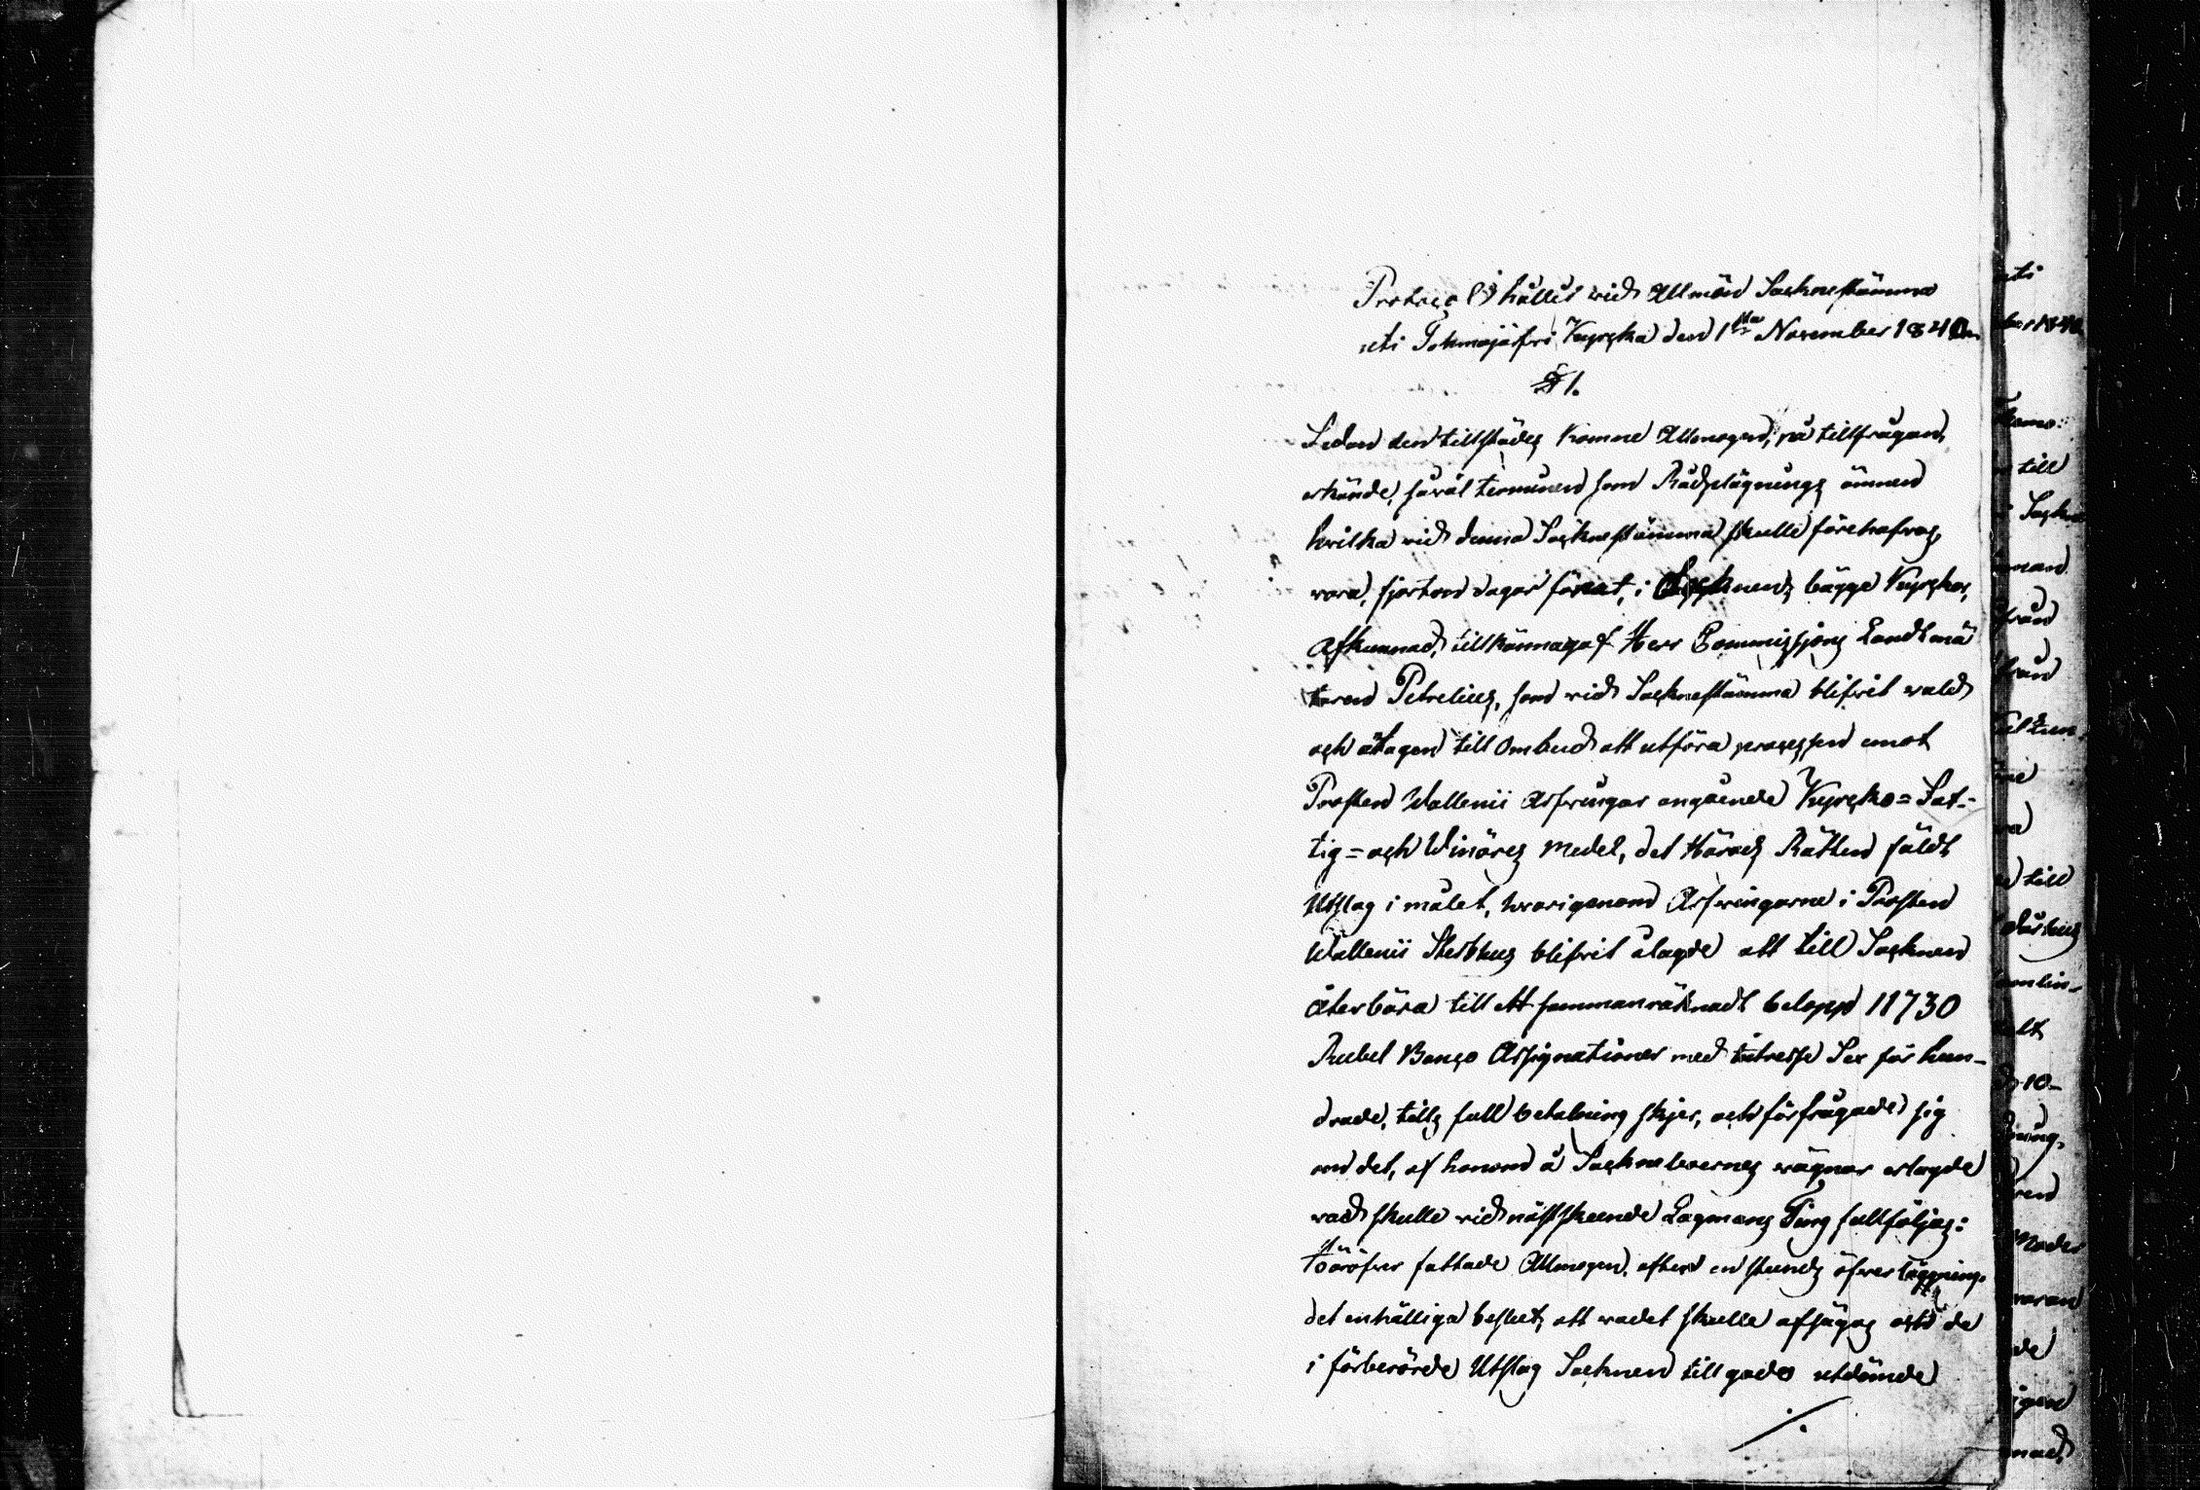 Protocoll hållet vid Allmän Socknestämma
uti Tohmajärfvi Kyrcka den 1sta November 1840
§ 1.
Sedan den tillstädes komne Allmogen, på tillfrågan,
erkände, såväl terminen som Rådplägnings ämnen
hvilka vid denna Socknestämma skulle förehafvas,
vara, fjorton dagar förut, i Socknens bägge Kyrckor,
afkunnad, tillkännagaf Herr Commissions Landtmä
taren Petrelius, som vid Socknestämma blifvit vald
och antagen till Ombud att utföra processen emot
Prosten Wallenii Arfvingar angående Kyrcko= Fat-
tig= och Winåres medel, det Härads Rätten fäldt
Utslag i målet, hvarigenom Arfvingarne i Prosten
Wallenii Sterbhus blifvit ålagde att till Socknen
återbära till ett sammanräknadt belopp 11730
Rubel Banco Assignationer med intresse Sex för hun-
drade, tills full betalning skjer, och förfrågade sig
om det, af honom å Sockneboernes vägnar erlagde
vad skulle vid nästskeende Lagmans Ting fullföljas:
Häröfver fattade Allmogen, efter en stunds öfverläggning,
det enhälliga beslut, att vadet skulle afsägas och de
i förberörde Utslag Socknen tillgodo utdömde
uti
ber 1840
till
Sockne
man
från
till
10-
ning,
Moder
varan
de